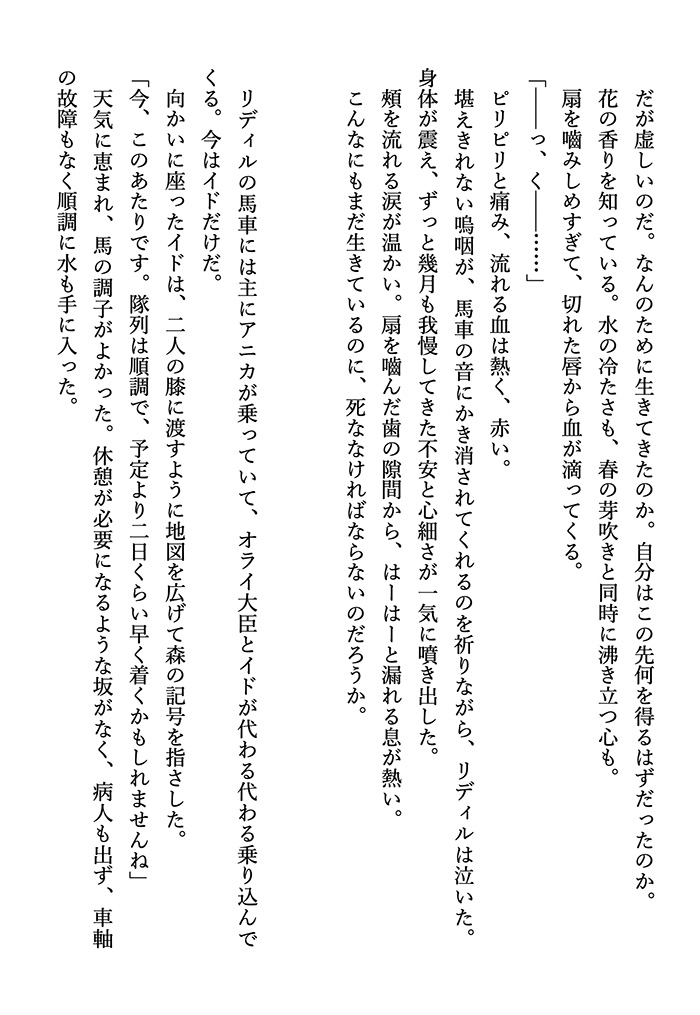 だが虚しいのだ。なんのために生きてきたのか。自分はこの先何を得るはずだったのか。
花の香りを知っている。水の冷たさも、春の芽吹きと同時に沸き立つ心も。
扇を嚙みしめすぎて、切れた唇から血が滴ってくる。
「――っ、く――……」
ピリピリと痛み、流れる血は熱く、赤い。
堪えきれない嗚咽が、馬車の音にかき消されてくれるのを祈りながら、リディルは泣いた。
身体が震え、ずっと幾月も我慢してきた不安と心細さが一気に噴き出した。
頰を流れる涙が温かい。扇を嚙んだ歯の隙間から、はーはーと漏れる息が熱い。
こんなにもまだ生きているのに、死ななければならないのだろうか。
リディルの馬車には主にアニカが乗っていて、オライ大臣とイドが代わる代わる乗り込んで
くる。今はイドだけだ。
向かいに座ったイドは、二人の膝に渡すように地図を広げて森の記号を指さした。
「今、このあたりです。隊列は順調で、予定より二日くらい早く着くかもしれませんね」
天気に恵まれ、馬の調子がよかった。休憩が必要になるような坂がなく、病人も出ず、車軸
の故障もなく順調に水も手に入った。